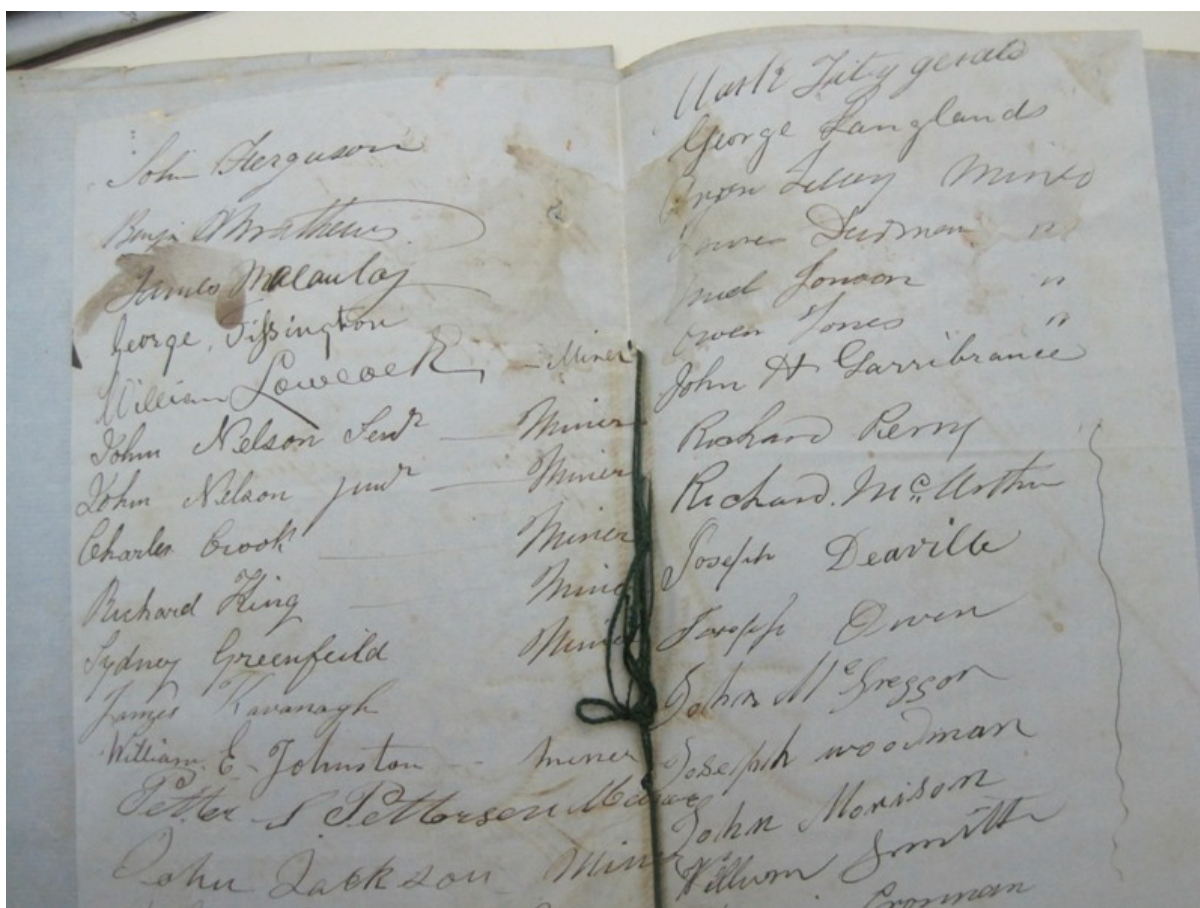 John Ferguson
Benjn Mathews
James Macaulay
George Tissington
William Lowcock, - Miner
John Nelson Senr - Miner
John Nelson junr - Miner
Charles Crook Miner
Richard King Miner
Sydney Greenfeild Miner
James Kavanagh
William E. Johnston - miner
Petter S Pettersen
John Jackson Miner
Mark Fitzgerald
George Langlands
Miner
Dudman "
"
Owen Jones "
John H Garribrance
Richard Perry
Richard. Mc Arthur
Joseph Deaville
Joseph Owen
John McGreggor
Joseph woodman
John Morison
William Smith